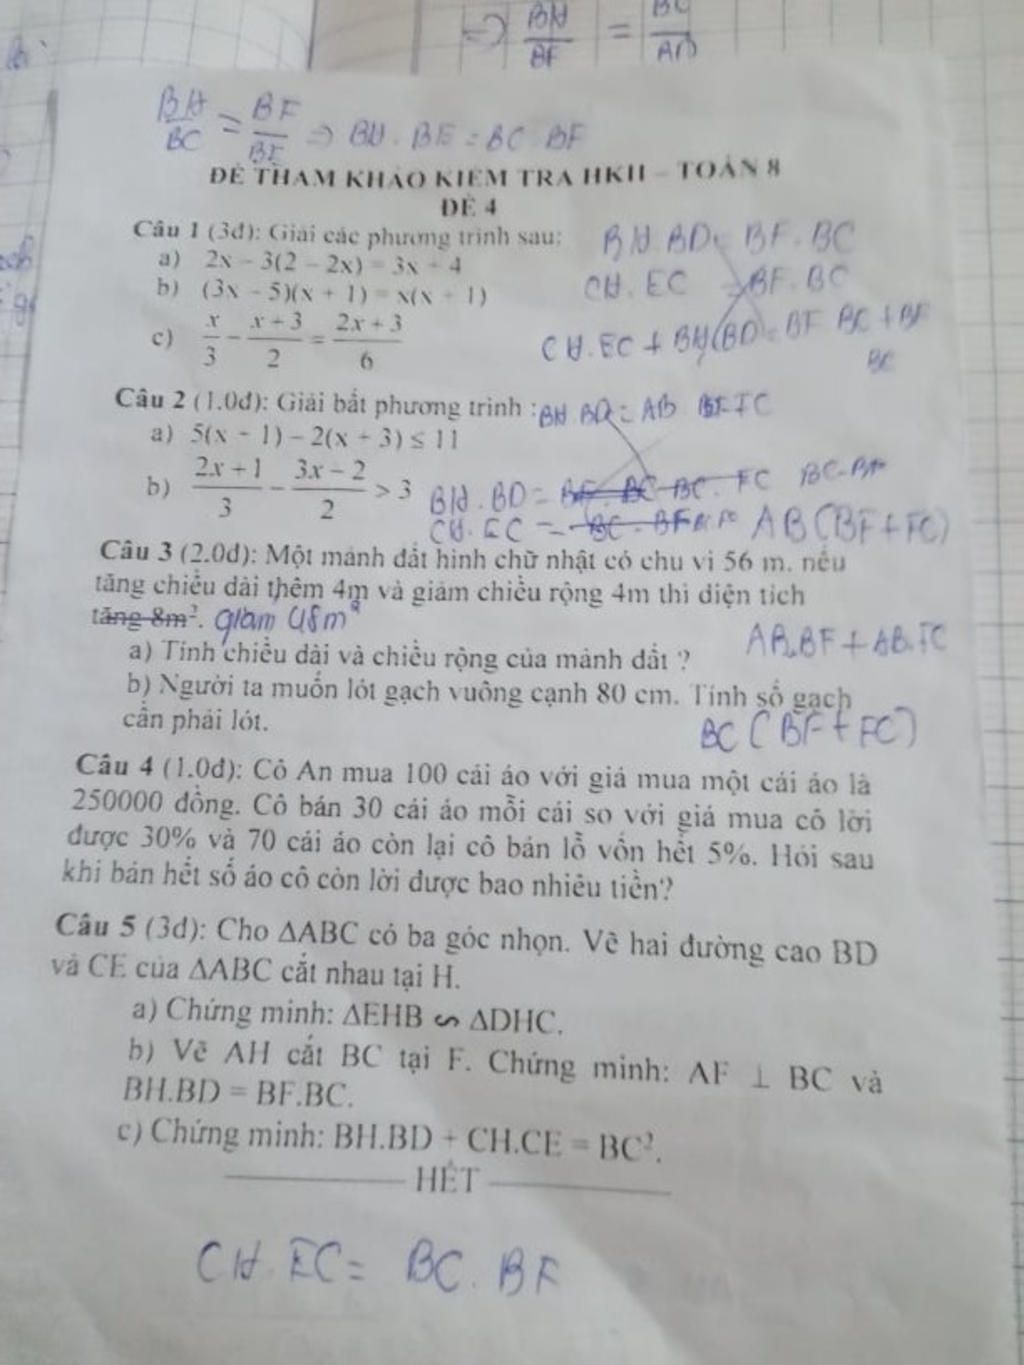 ⇒ BH/BF = BC/AD
BH/BC = BF/BE ⇒ BH . BE = BC . BF
ĐỀ THAM KHẢO KIỂM TRA HKII – TOÁN 8
ĐỀ 4
Câu 1 (3đ): Giải các phương trình sau:
BH. BD = BF. BC
a) 2x – 3(2 – 2x) = 3x + 4
CH. EC = BF. BC
b) (3x – 5)(x + 1) = x(x + 1)
c) x/3 – (x + 3)/2 = (2x + 3)/6
CH. EC + BH.BD = BF BC + BF
BC
Câu 2 (1.0đ): Giải bất phương trình :
BH. BD = AB BF.FC
a) 5(x – 1) – 2(x + 3) ≤ 11
b) (2x + 1)/3 – (3x – 2)/2 > 3
BH. BD = BF. BC BC. FC
CH. EC = BC. BF AB(BF+FC)
Câu 3 (2.0đ): Một mảnh đất hình chữ nhật có chu vi 56 m. nếu
tăng chiều dài thêm 4m và giảm chiều rộng 4m thì diện tích
tăng 8m². giảm 48m²
AB.BF + AB.FC
a) Tính chiều dài và chiều rộng của mảnh đất ?
b) Người ta muốn lót gạch vuông cạnh 80 cm. Tính số gạch
cần phải lót.
BC (BF + FC)
Câu 4 (1.0đ): Cô An mua 100 cái áo với giá mua một cái áo là
250000 đồng. Cô bán 30 cái áo mỗi cái so với giá mua cô lời
được 30% và 70 cái áo còn lại cô bán lỗ vốn hết 5%. Hỏi sau
khi bán hết số áo cô còn lời được bao nhiêu tiền?
Câu 5 (3đ): Cho ΔABC có ba góc nhọn. Vẽ hai đường cao BD
và CE của ΔABC cắt nhau tại H.
a) Chứng minh: ΔEHB ∽ ΔDHC.
b) Vẽ AH cắt BC tại F. Chứng minh: AF ⊥ BC và
BH.BD = BF.BC.
c) Chứng minh: BH.BD + CH.CE = BC².
HẾT
CH. EC = BC. BF